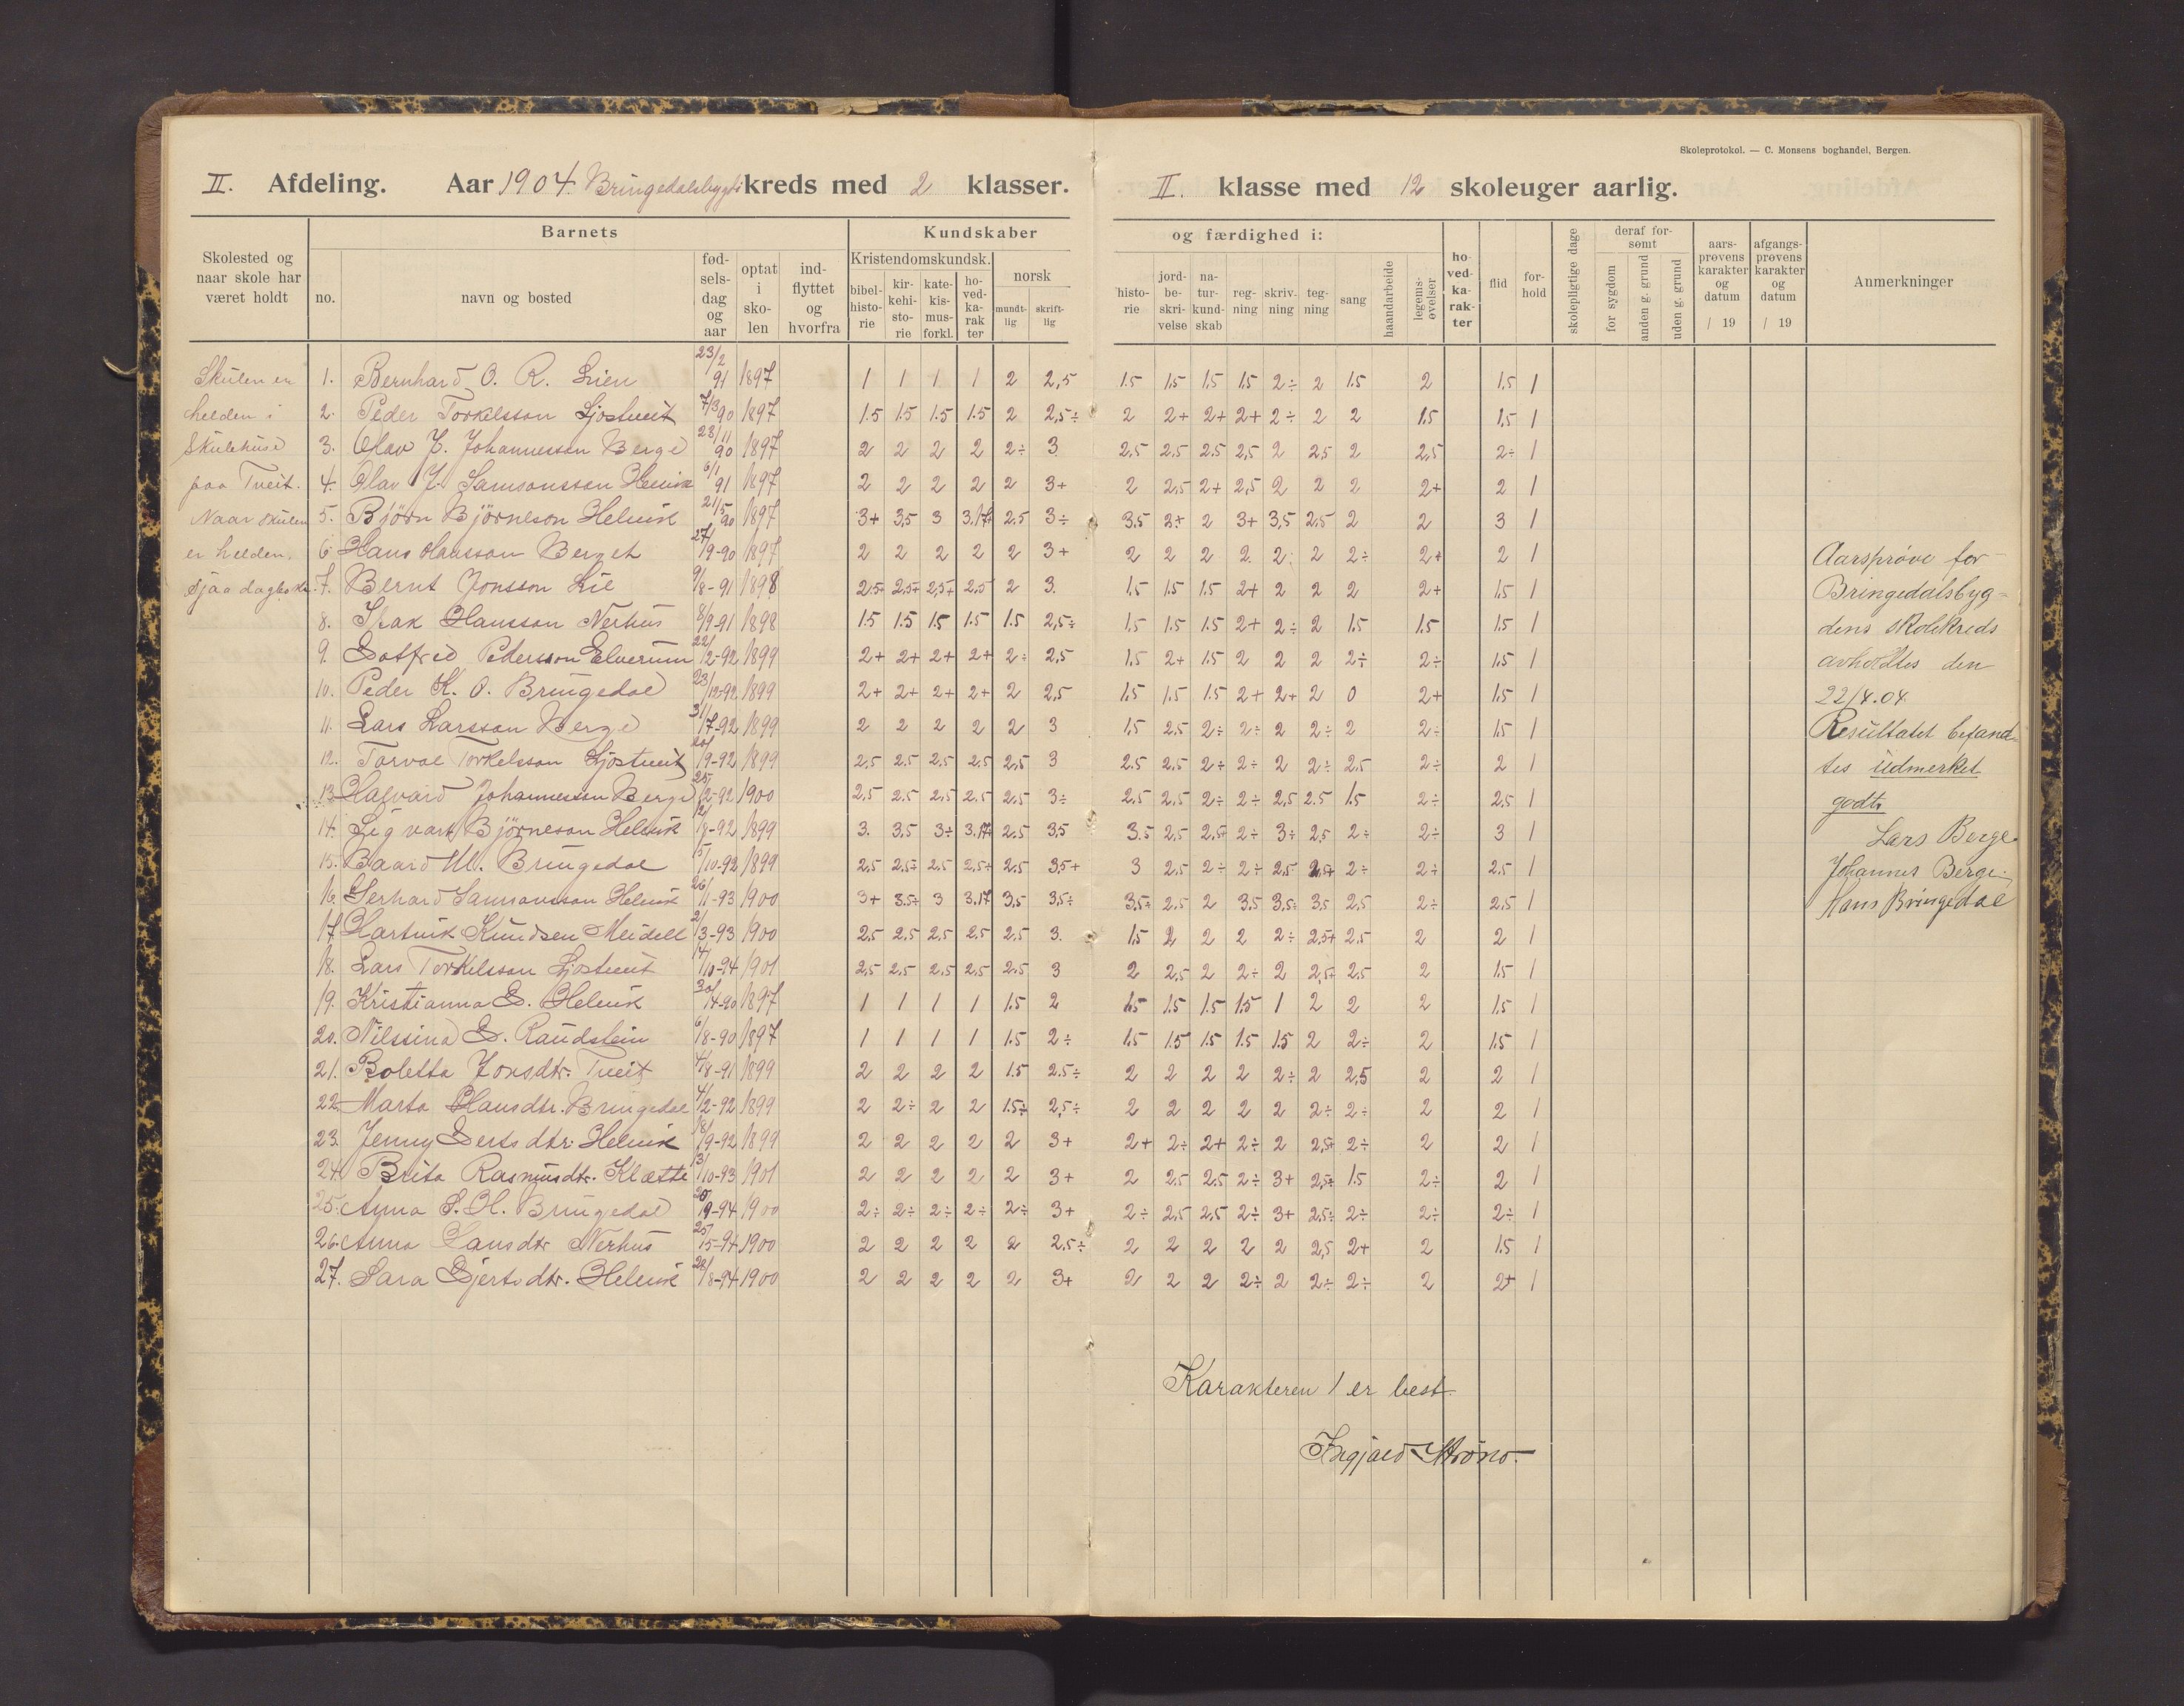 Skoleprotokol. — C. Monsens boghandel, Bergen.
II. Afdeling. Aar 1904 Bringedalsbygdi kreds med 2 klasser. II. klasse med 12 skoleuger aarlig.
Skolested og naar skole har været holdt
Barnets
no. navn og bosted fødselsdag og aar optat i skolen indflyttet og hvorfra
Kundskaber og færdighed i:
Kristendomskundsk. bibelhistorie kirkehistorie katekismusforkl. hovedkarakter
norsk mundtlig skriftlig
historie jordbeskrivelse naturkundskab regning skrivning tegning sang haandarbeide legemsøvelser
hovedkarakter flid forhold skolepligtige dage
deraf forsømt for sygdom anden g. grund uden g. grund
aarsprøvens karakter og datum / 19
afgangsprøvens karakter og datum / 19
Anmerkninger
Skulen er
helden i
Skulehuse
paa Tveit.
Naar skulen
er helden,
sjaa dagbok.
1. Bernhard O. R. Lien 23/2 91 1897 1 1 1 1 2 2,5 1.5 1.5 1.5 1.5 2÷ 2 1.5 2 1.5 1
2. Peder Torkelsson Ljostveit 7/3 90 1897 1.5 1.5 1.5 1.5 2 2,5÷ 2 2+ 2+ 2+ 2÷ 2 2 1.5 1.5 1
3. Olav J. Johannesson Berge 28/11 90 1897 2 2 2 2 2÷ 3 2,5 2.5 2.5 2,5 2 2.5 2 2,5 2÷ 1
4. Olav J. Samsonsson Helvik 6/1 91 1897 2 2 2 2 2 3+ 2 2,5 2+ 2,5 2 2 2 2+ 2 1
5. Björn Björneson Helvik 21/5 90 1897 3+ 3,5 3 3.17 2,5 3÷ 3.5 3+ 2 3+ 3,5 2,5 2 2 3 1
6. Hans Hansson Berget 27/9-90 1897 2 2 2 2 2 3+ 2 2 2 2 2 2 2÷ 2+ 2 1
7. Bernt Jonsson Lie 9/8-91 1898 2.5+ 2,5+ 2,5+ 2,5 2 3. 1.5 1.5 1.5 2+ 2 2 2 2+ 1.5 1
8. Isak Hansson Nerhus 8/9-91 1898 1.5 1.5 1.5 1.5 1.5 2,5÷ 1.5 1.5 1.5 2+ 2÷ 2 1.5 1.5 1.5 1
9. Gotfred Pedersson Elverum 22/2-92 1899 2+ 2+ 2+ 2+ 2÷ 2,5 1.5 2+ 1.5 2 2 2 2÷ 2÷ 1.5 1
10. Peder K. O. Bringedal 23/12-92 1899 2+ 2+ 2+ 2+ 2 2,5 1.5 1.5 1.5 2+ 2+ 2 0 2+ 1.5 1
11. Lars Larsson Berge 31/7-92 1899 2 2 2 2 2 3 1,5 2.5 2÷ 2÷ 2 2÷ 2 2÷ 1.5 1
12. Torval Torkelsson Ljostveit 20/9-92 1899 2,5 2.5 2,5 2,5 2,5 3 2.5 2,5 2÷ 2÷ 2 2÷ 2.5 2÷ 2 1
13. Halvard Johannesson Berge 25/2-92 1900 2,5 2,5 2,5 2,5 2,5 3÷ 2.5 2,5 2÷ 2÷ 2,5 2.5 1.5 2÷ 2,5 1
14. Sigvart Björneson Helvik 1899 3. 3,5 3÷ 3.17 2,5 3,5 3.5 2,5 2,5+ 2÷ 3÷ 2,5 2÷ 2÷ 3 1
15. Baard M. Bringedal 5/10-92 1899 2,5 2,5÷ 2.5 2,5÷ 2,5 3,5+ 3 2.5 2÷ 2÷ 2,5 2,5+ 2÷ 2÷ 2,5 1
16. Gerhard Samsonsson Helvik 26/1-93 1900 3+ 3.5+ 3 3.17 3,5 3,5÷ 3,5÷ 2.5 2 3.5 3,5÷ 3,5 2,5 2÷ 2,5 1
17. Hartvik Knudsen Meidell 2/3-93 1900 2,5 2,5 2,5 2,5 2,5 3. 1.5 2 2 2 2÷ 2,5+ 2,5 2 2 1
18. Lars Torkelsson Ljostveit 14/10-94 1901 2,5 2,5 2,5 2,5 2,5 3 2 2,5 2 2÷ 2 2,5+ 2,5 2 1.5 1
19. Kristianna G. Helvik 30/4-90 1897 1 1 1 1 1.5 2 1.5 1.5 1.5 1.5 1 2 2 2 1.5 1
20. Nilssina G. Raudstein 6/8-90 1897 1 1 1 1 1.5 2÷ 1.5 1.5 1.5 1.5 1.5 2 2÷ 2 1.5 1
21. Boletta Jonsdtr. Tveit 4/8-91 1899 2 2 2 2 1.5 2.5÷ 2 2 2 2 2÷ 2 2,5 2 2 1
22. Marta Hansdtr. Bringedal 4/2-92 1899 2 2÷ 2 2 1.5÷ 2,5÷ 2 2 2 2 2 2÷ 2÷ 2 2 1
23. Jenny Gertsdtr. Helvik 18/9-92 1899 2 2 2 2 2 3+ 2+ 2÷ 2+ 2÷ 2 2,5+ 2÷ 2 2 1
24. Brita Rasmusdtr. Klætte 3/10-93 1901 2 2 2 2 2 3+ 2 2.5 2.5 2÷ 3+ 2,5+ 1.5 2÷ 2 1
25. Anna S. H. Bringedal 20/9-94 1900 2÷ 2÷ 2÷ 2÷ 2÷ 3+ 2÷ 2,5 2,5 2÷ 3+ 2,5÷ 2÷ 2÷ 2÷ 1
26. Anna Hansdtr Nerhus 25/5-94 1900 2 2 2 2 2 2,5÷ 2 2 2 2 2 2,5 2+ 2 1.5 1
27. Sara Gjertsdtr. Helvik 28/8-94 1900 2 2 2 2 2 3+ 2 2 2 2÷ 2 2÷ 2÷ 2 2+ 1
Aarsprøve for
Bringedalsbyg-
dens skolekreds
avholdtes den
22/4.04.
Resultatet befand-
tes udmerket
godt.
Lars Berge.
Johannes Berge.
Hans Bringedal
Karakteren 1 er best.
Ingjald Strönd.